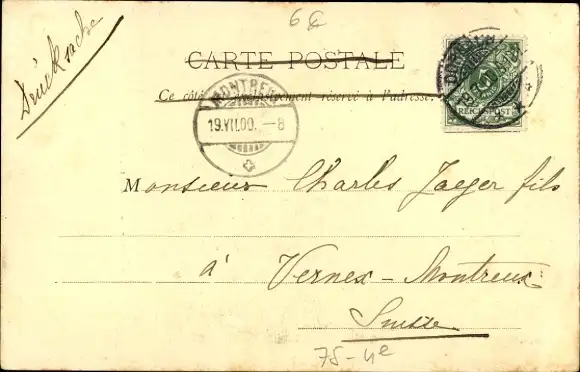 6€
Drucksache
CARTE POSTALE
Ce côté est exclusivement réservé à l'adresse.
MONTREUX
19.VII.00.-8
5
REICHSPOST
Monsieur Charles Jaeger fils
à Vernex-Montreux
Suisse
75-4e